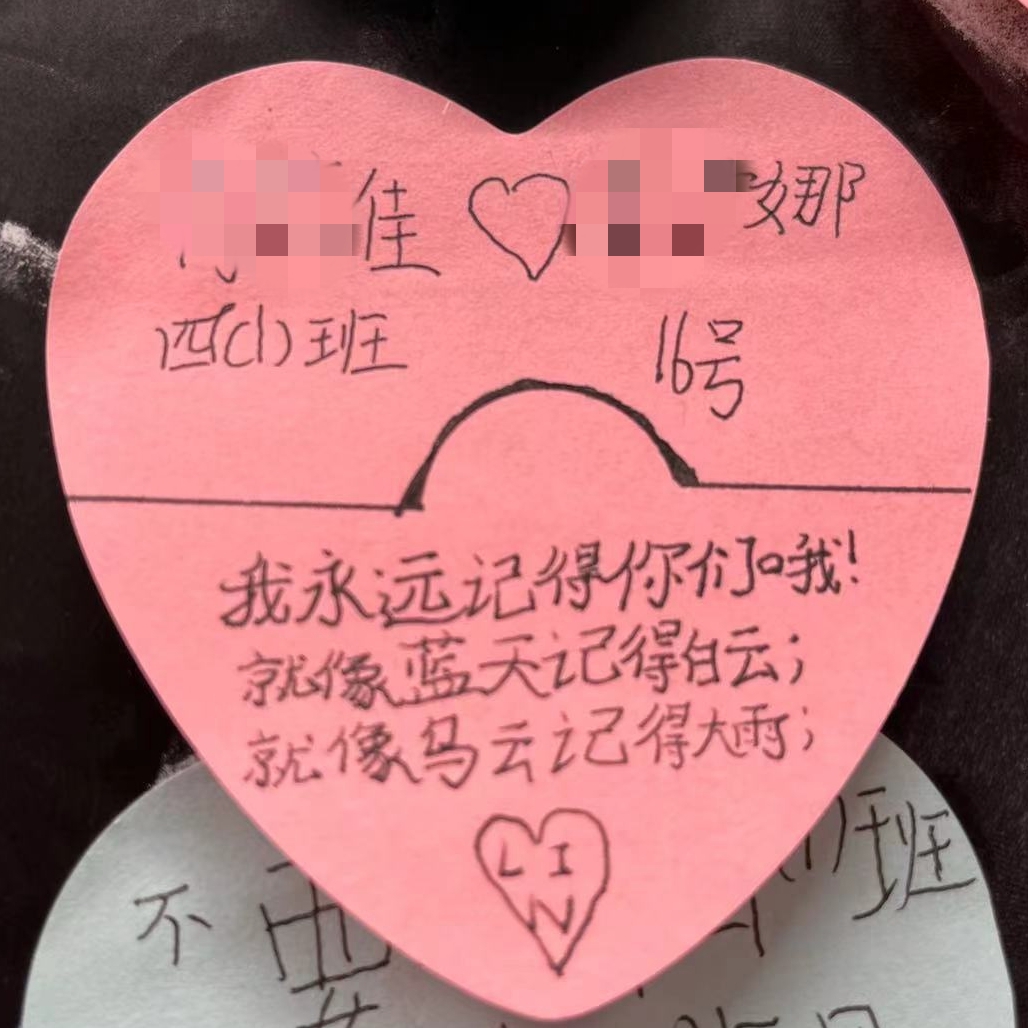 佳 娜
四(1)班 16号
我永远记得你们哦!
就像蓝天记得白云;
就像乌云记得大雨;
LIN
班
不